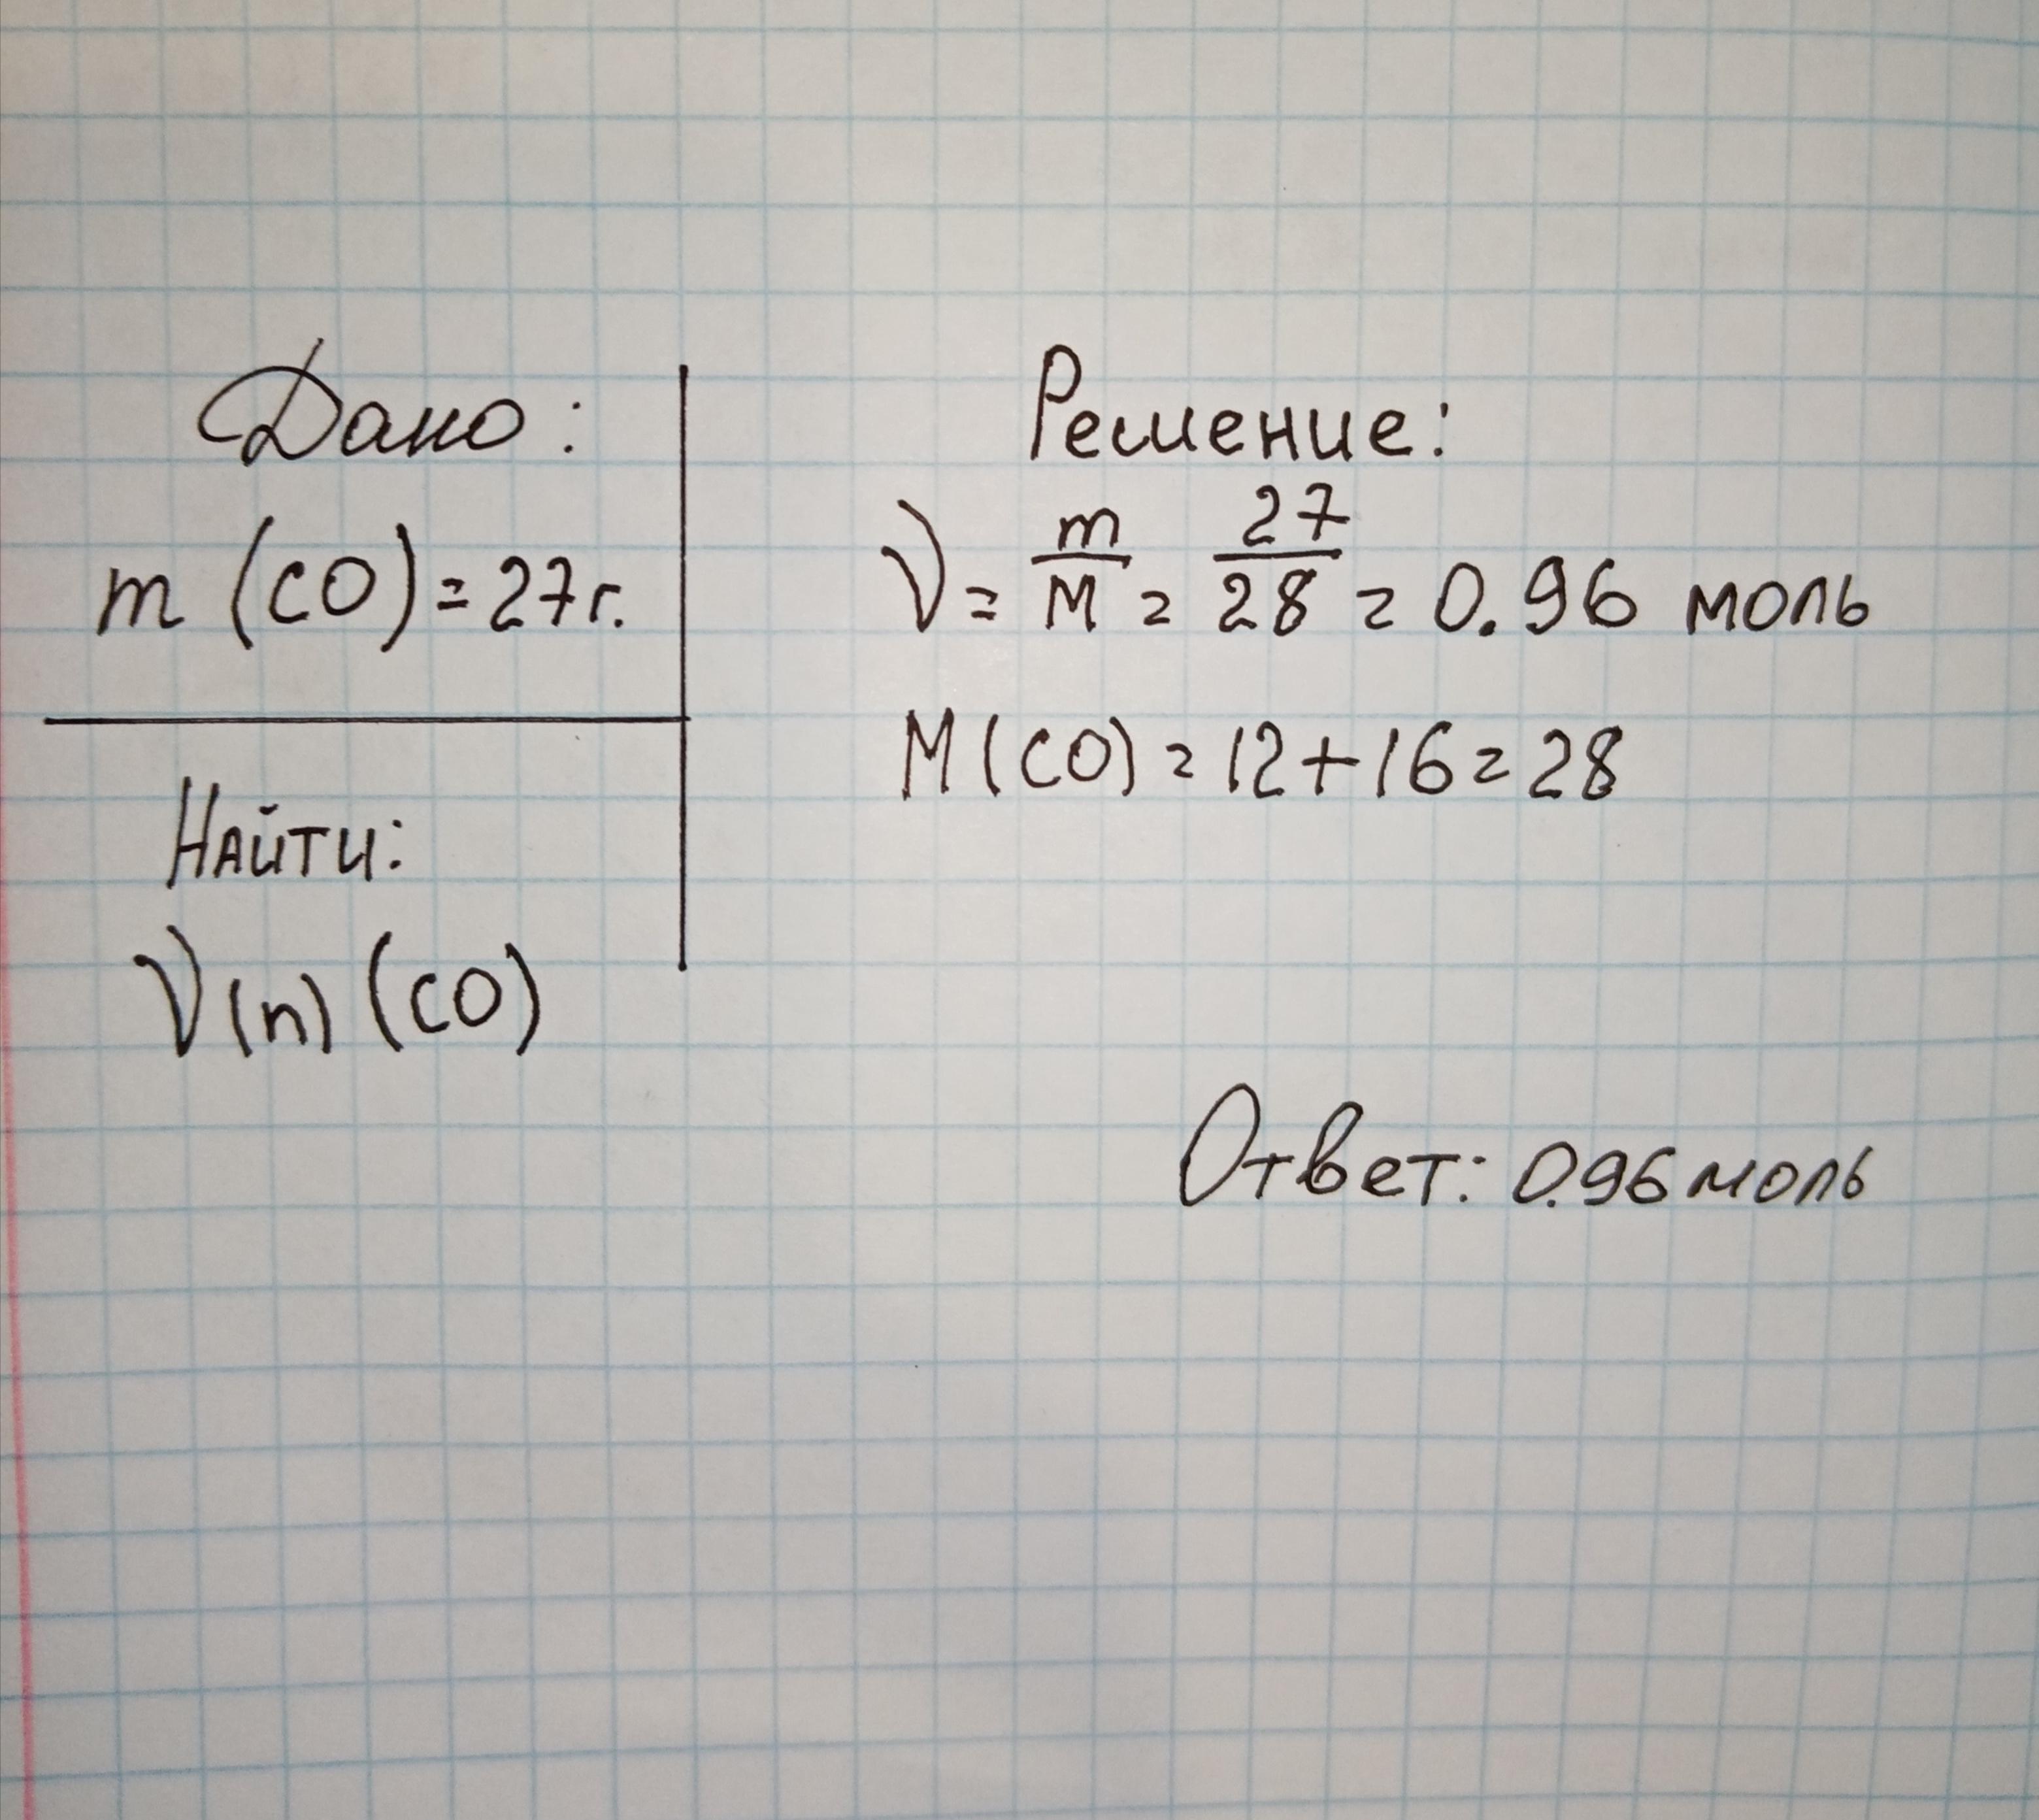 Дано:
m (CO) = 27г.
Найти:
ν(n) (CO)
Решение:
ν = m/M = 27/28 = 0.96 моль
M(CO) = 12+16=28
Ответ: 0.96 моль